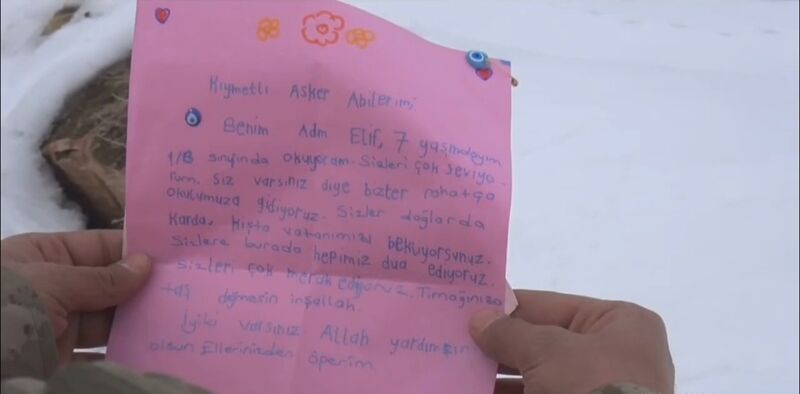 Kıymetli Asker Abilerim;
Benim Adım Elif, 7 yaşındayım
1/B sınıfında okuyorum. Sizleri çok seviyo-
rum. Siz varsınız diye bizler rahatça
okulumuza gidiyoruz. Sizler dağlarda
Karda, Kışta vatanımızı bekliyorsunuz.
Sizlere burada hepimiz dua ediyoruz.
Sizleri çok merak ediyoruz. Tırnağınıza
taş değmesin inşallah.
İyiki varsınız. Allah yardımcınız
olsun Ellerinizden öperim